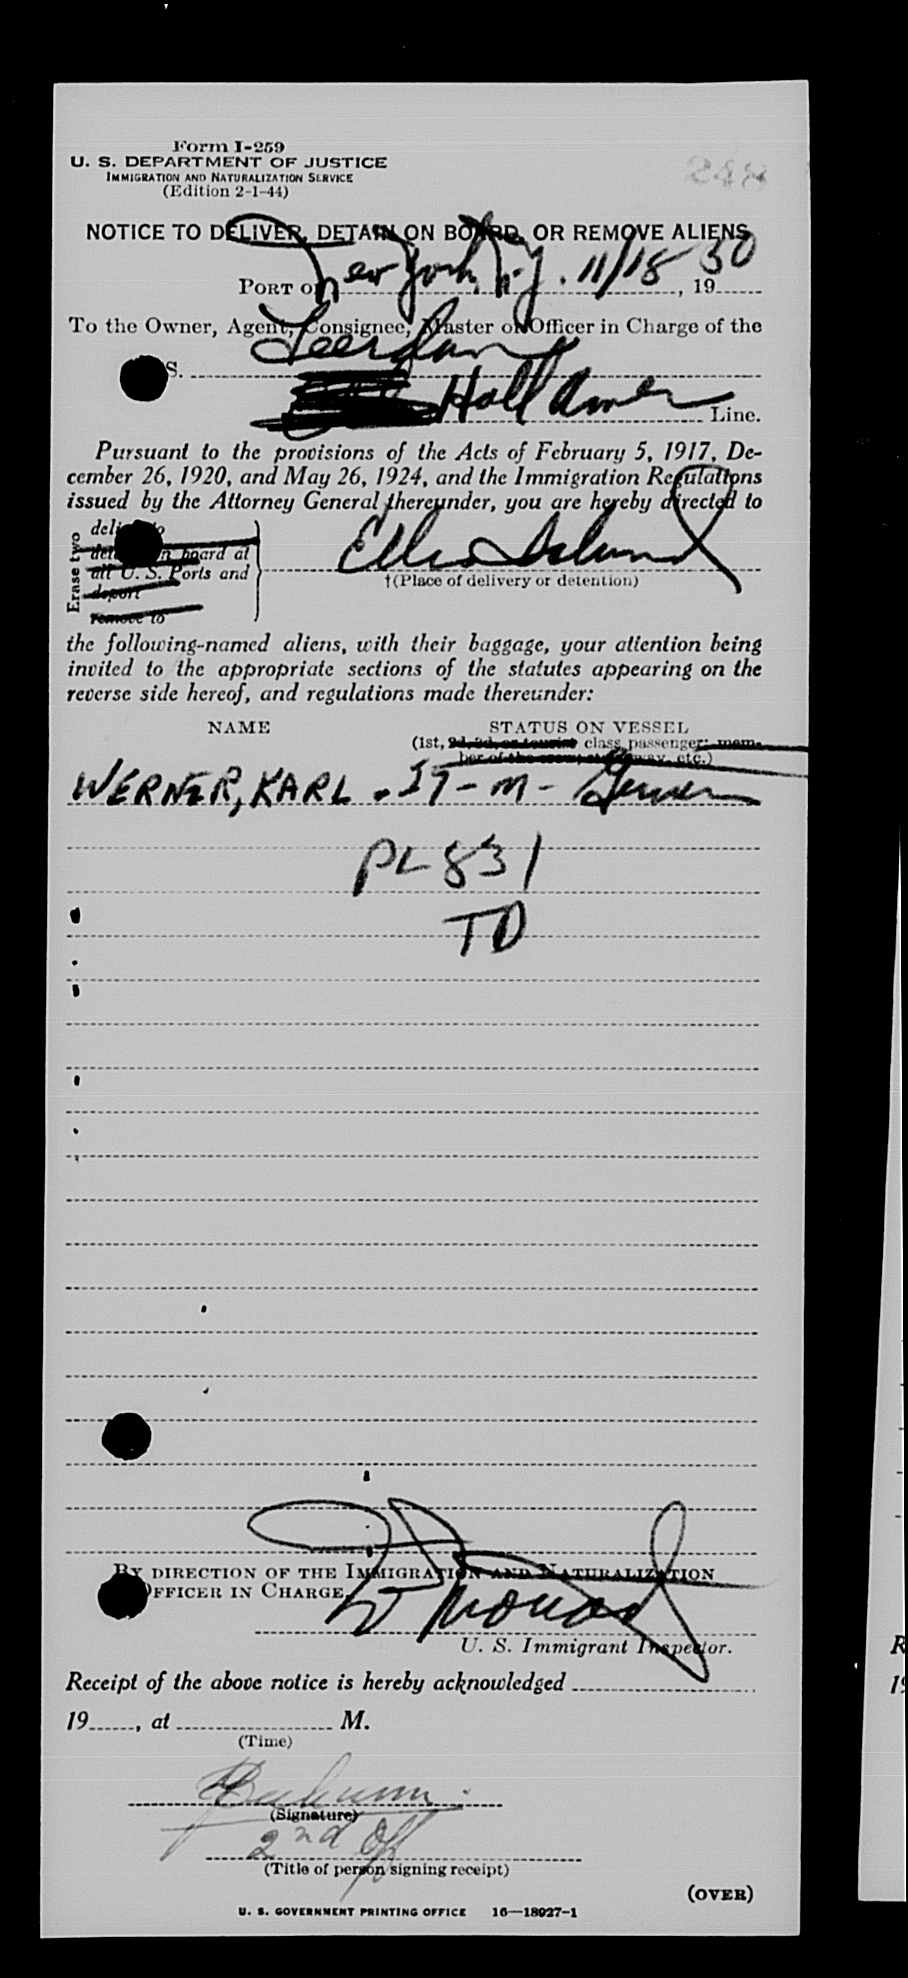 Form I-259
U. S. DEPARTMENT OF JUSTICE
IMMIGRATION AND NATURALIZATION SERVICE
(Edition 2-1-44)
248
NOTICE TO DELIVER, DETAIN ON BOARD, OR REMOVE ALIENS
PORT OF New York, N.Y. 11/18, 1950
To the Owner, Agent, Consignee, Master or Officer in Charge of the
S. Leerdam
Holl Amer Line.
Pursuant to the provisions of the Acts of February 5, 1917, De-
cember 26, 1920, and May 26, 1924, and the Immigration Regulations
issued by the Attorney General thereunder, you are hereby directed to
Erase two
deliver to
detain on board at
all U. S. Ports and
deport
remove to
Ellis Island
†(Place of delivery or detention)
the following-named aliens, with their baggage, your attention being
invited to the appropriate sections of the statutes appearing on the
reverse side hereof, and regulations made thereunder:
NAME STATUS ON VESSEL
(1st, 2d, 3d, or tourist class passenger; mem-
ber of the crew, stowaway, etc.)
WERNER, KARL . 27 - M - German
PL 831
TD
BY DIRECTION OF THE IMMIGRATION AND NATURALIZATION
OFFICER IN CHARGE
U. S. Immigrant Inspector.
Receipt of the above notice is hereby acknowledged
19 , at M.
(Time)
(Signature)
2nd Off
(Title of person signing receipt)
(OVER)
U. S. GOVERNMENT PRINTING OFFICE 16—18927-1